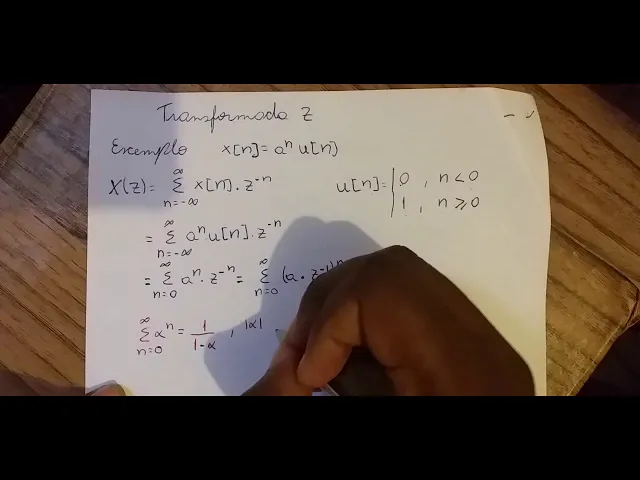 Transformada Z
Exemplo x[n]=aⁿu[n]
X(z)= ∞ Σ n=-∞ x[n]·z⁻ⁿ
u[n]= | 0 , n<0
1 , n⩾0
= ∞ Σ n=-∞ aⁿ·u[n]·z⁻ⁿ
= ∞ Σ n=0 aⁿ·z⁻ⁿ = ∞ Σ n=0 (a·z⁻¹)ⁿ
∞ Σ n=0 αⁿ = 1/1-α , |α|